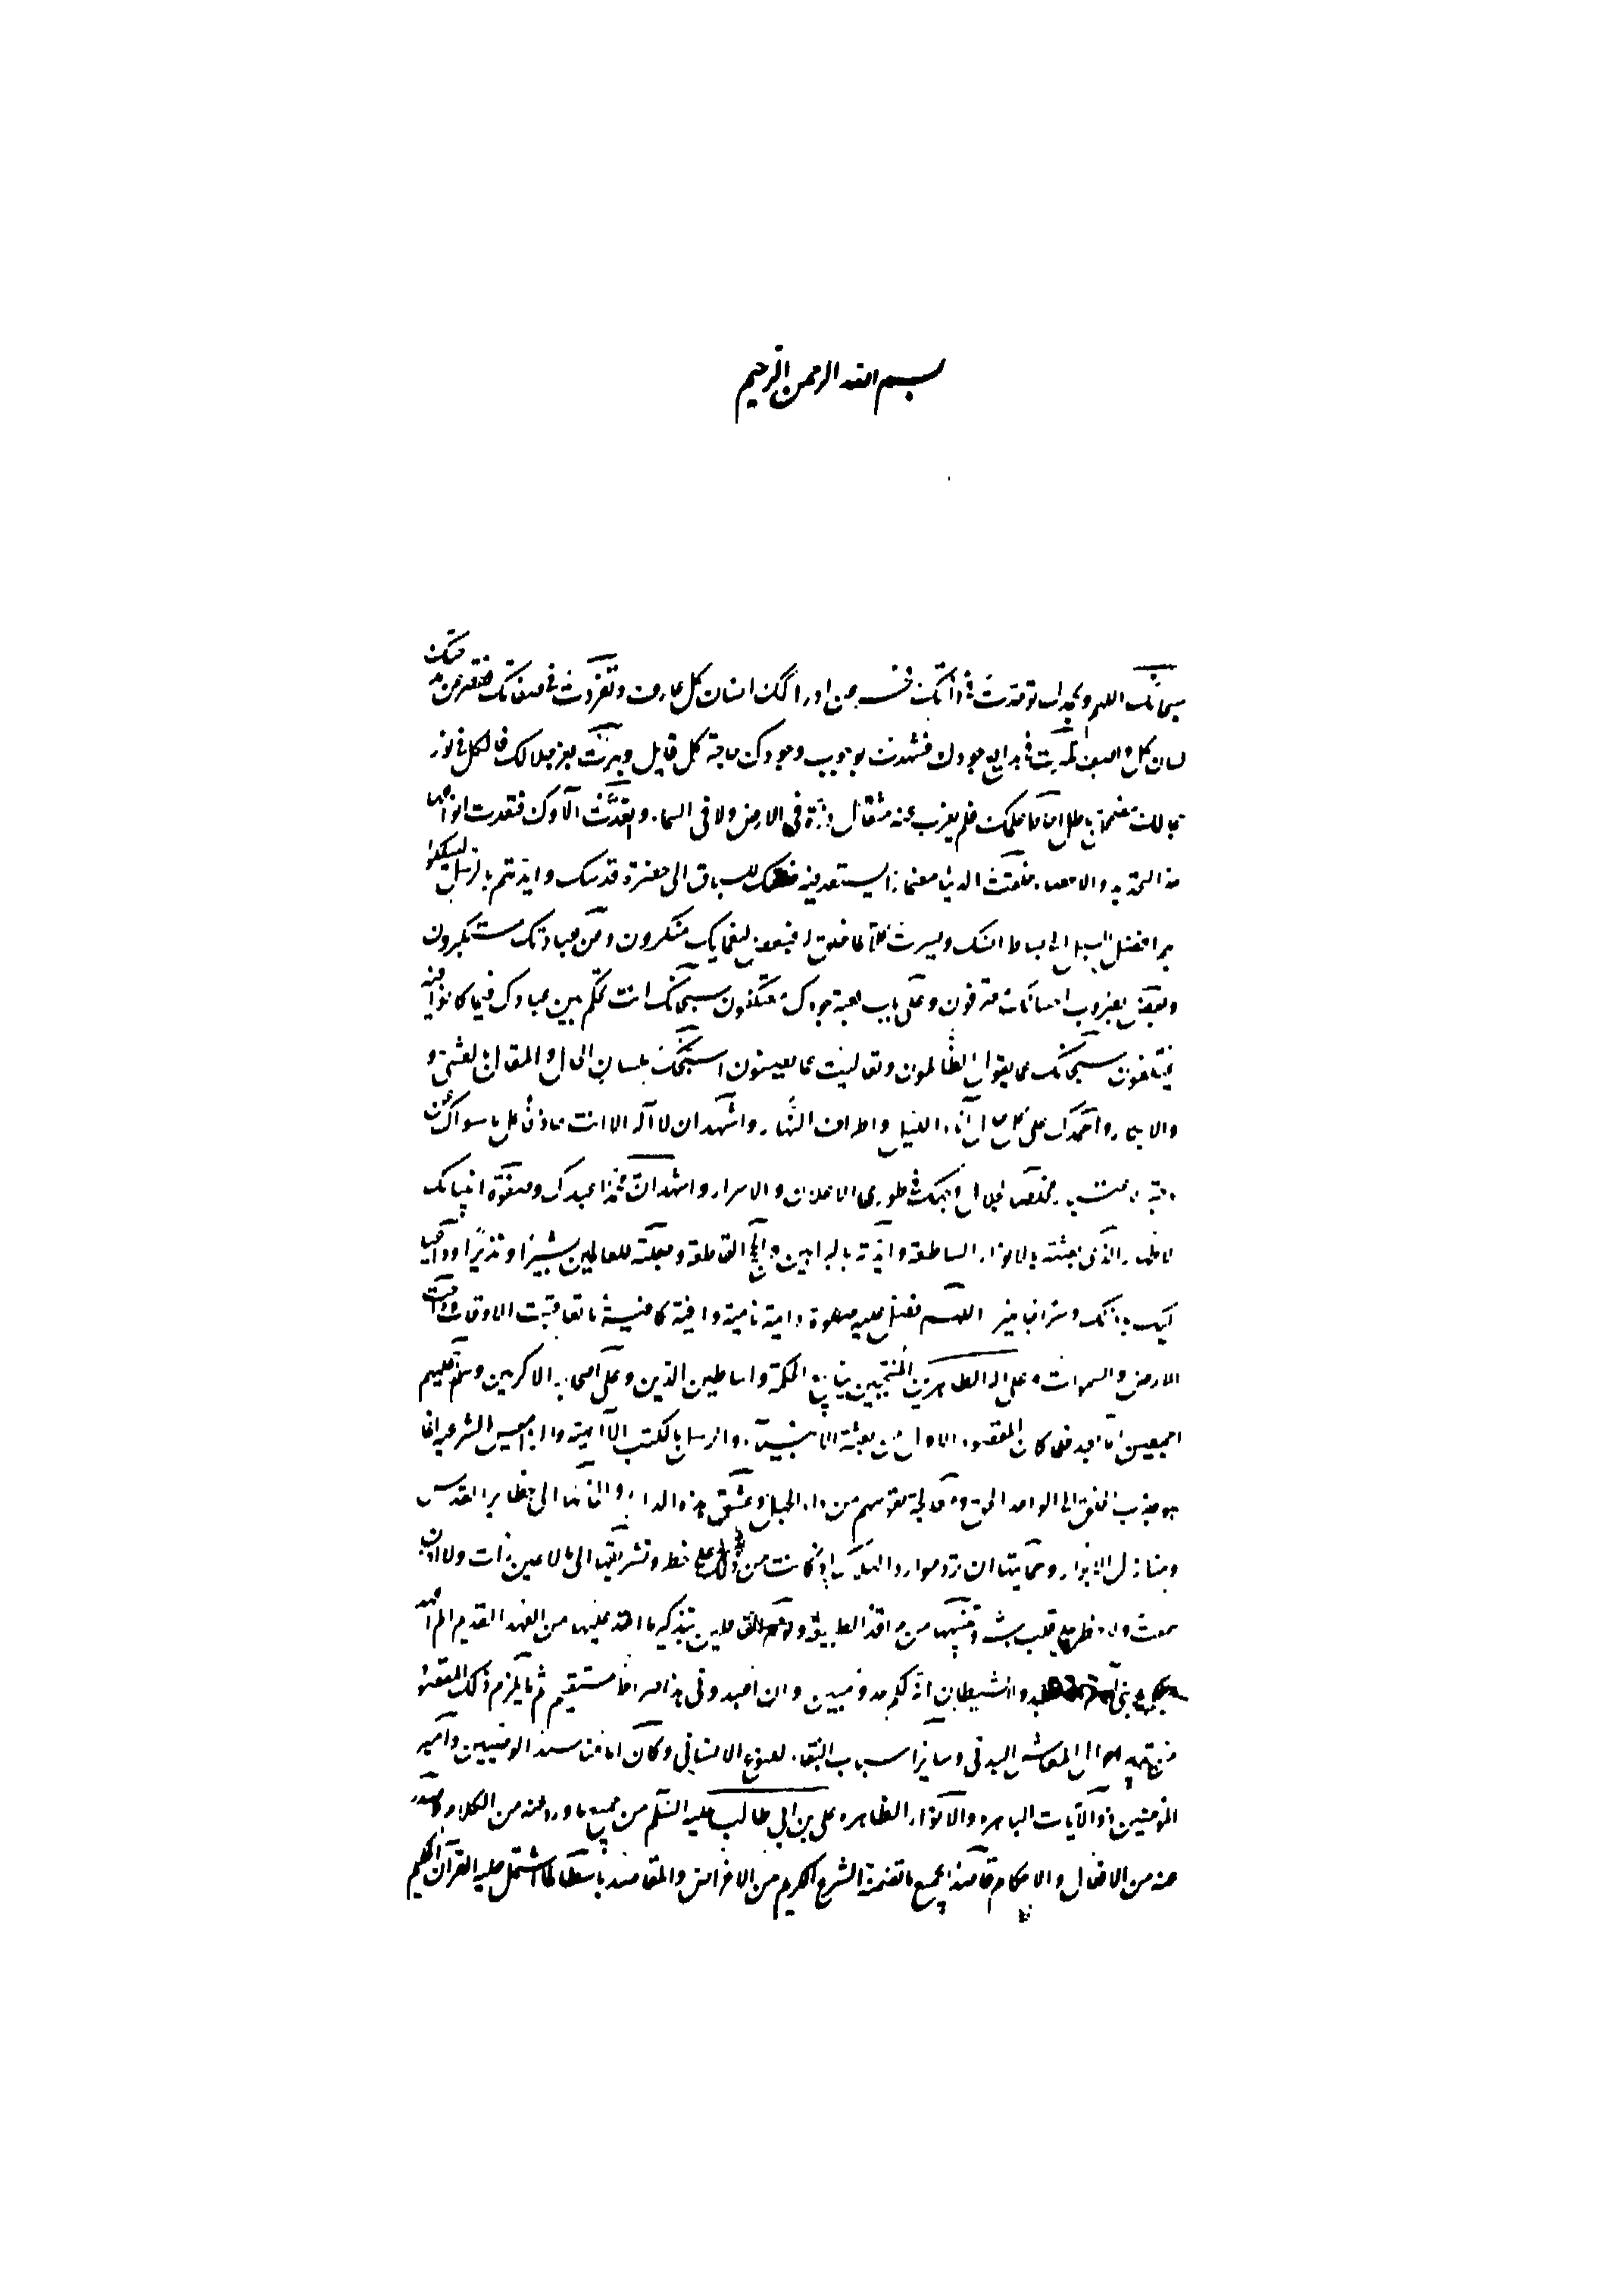 بسم الله الرحمن الرحيم
سبحانك اللهم وبحمدك توحدت في ذاتك فحسر عن ادراكك انسان كل عارف وتفردت في صفاتك فقصر عن مدحتك
لسان كل واصف بدايع جودك فشهدت بوجوب وجودك حاجة كل قايل وبهرت بعز جلالك فالكل في نور
جمالك علمك فلم يعزب عنه مثقال ذرة في الارض ولا في السماء وتعددت آلاوك فتعدت انواعها
حد التحديد والاحصاء خلقت الدنيا ليستعد فيه للسباق الى حضرة قدسك وايدتهم بالرسل ليسلكوا
بهم افضل السبل الى بساط انسك ويسرت كلا لما خلق له فبعض لنعمايك منكرون وعن عبادتك مستكبرون
وبعض بضروب احسانك معترفون وعلى باب كعبة جودك معتكفون سبحانك انت تحكم بين عبادك فيما كانوا فيه
يختلفون سبحانك عما يقول الظالمون وتعاليت عما يصفون اسبحك بلسان الحال والمقال بالعشي و
والابكار واحمدك على كل حال آناء الليل واطراف النهار واشهد ان لا اله الا انت على ما سواك
مخلص في طوري الاعلان والاسرار واشهد ان محمدا عبدك وصفوة انبيائك
الاطهار الذي بعثته بالانوار الساطعة وايدته بالبراهين والحجج القاطعة وجعلته للعالمين بشيرا ونذيرا وداعيا
اليك باذنك وسراجا منيرا اللهم فصل عليه صلوة دامية نامية وافية كافية ما تعاقبت الاوقات ودامت
الارض والسموات وعلى اله الطاهرين المنتجبين ينابيع الحكمة واساطين الدين وعلى اصحابه الاكرمين وسلم عليهم
اجمعين اما بعد فلما كان المقصود الاول من بعثة الانبياء والرسل بالكتب الالهية والنواميس الشرعية انما
هو جذب الخلق الى الواحد الحق ومعالجة نفوسهم من داء الجهل وعشق هذه الدار والفاتها الى حظاير القدس
ومنازل الابرار وحمايتها ان ترد موارد الهلكة اذ كانت من ذلك على خطر وتشريفها الى ما لا عين رات ولا اذن
سمعت ولا خطر على قلب بشر وتنبيهها من مراقد الطبيعة الغافلين بتذكير ما اخذ عليها من العهد القديم الم اعهد
اليكم يا بني آدم ان لا تعبدوا الشيطان انه لكم عدو مبين وان اعبدوني هذا صراط مستقيم ثم ما يلزم ذلك المقصود
من تدبير احوال المعاش البدني وساير اسباب البقاء للنوع الانساني وكان امامنا سيد الوصيين وامير
المؤمنين ذو الآيات الباهرة والانوار الظاهرة علي بن ابي طالب عليه السلم من جميع ما ورد عنه من الكلام وصدر
عنه من الافعال والاحكام قاصدا لجميع ما تضمنه الشرع الكريم من الاغراض والمقاصد باسطا لما اشتمل عليه القرآن الحكيم